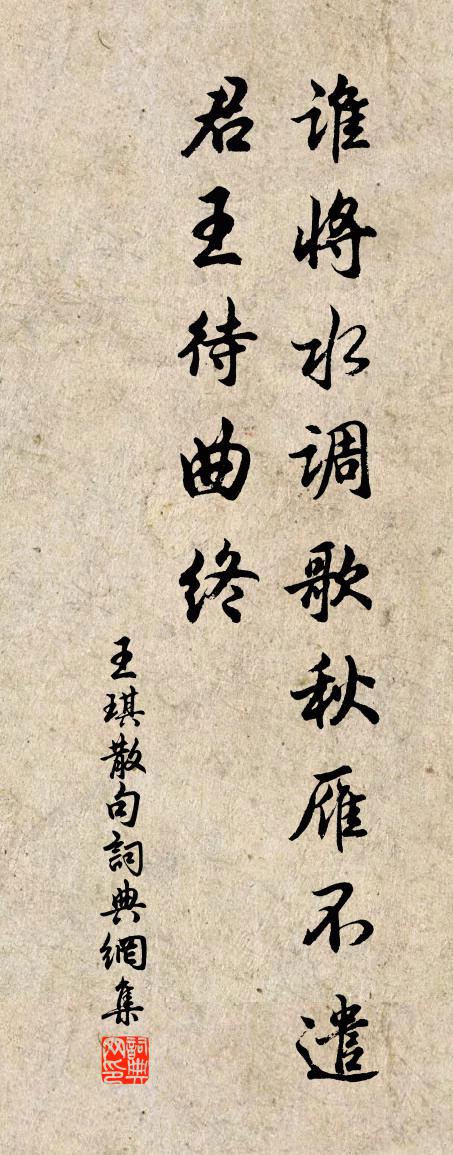 谁将水调歌秋雁不遣
君王待曲终
王琪散句詞典網集
詞典网印